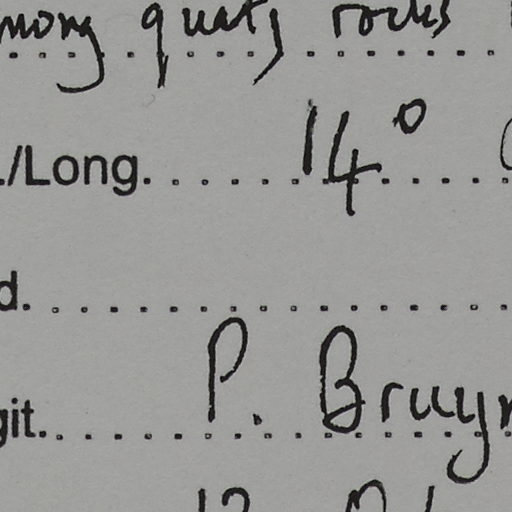 among quartz rocks
./Long. 14°
d.
git. P. Bruyn